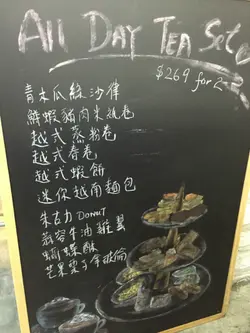 All Day Tea Set
$269 for 2
青木瓜絲沙律
鮮蝦豬肉米紙卷
越式蒸粉卷
越式春卷
越式蝦餅
迷你越南麵包
朱古力 DONUT
蒜容牛油雞翼
蝴蝶酥
芒果栗子拿破倫